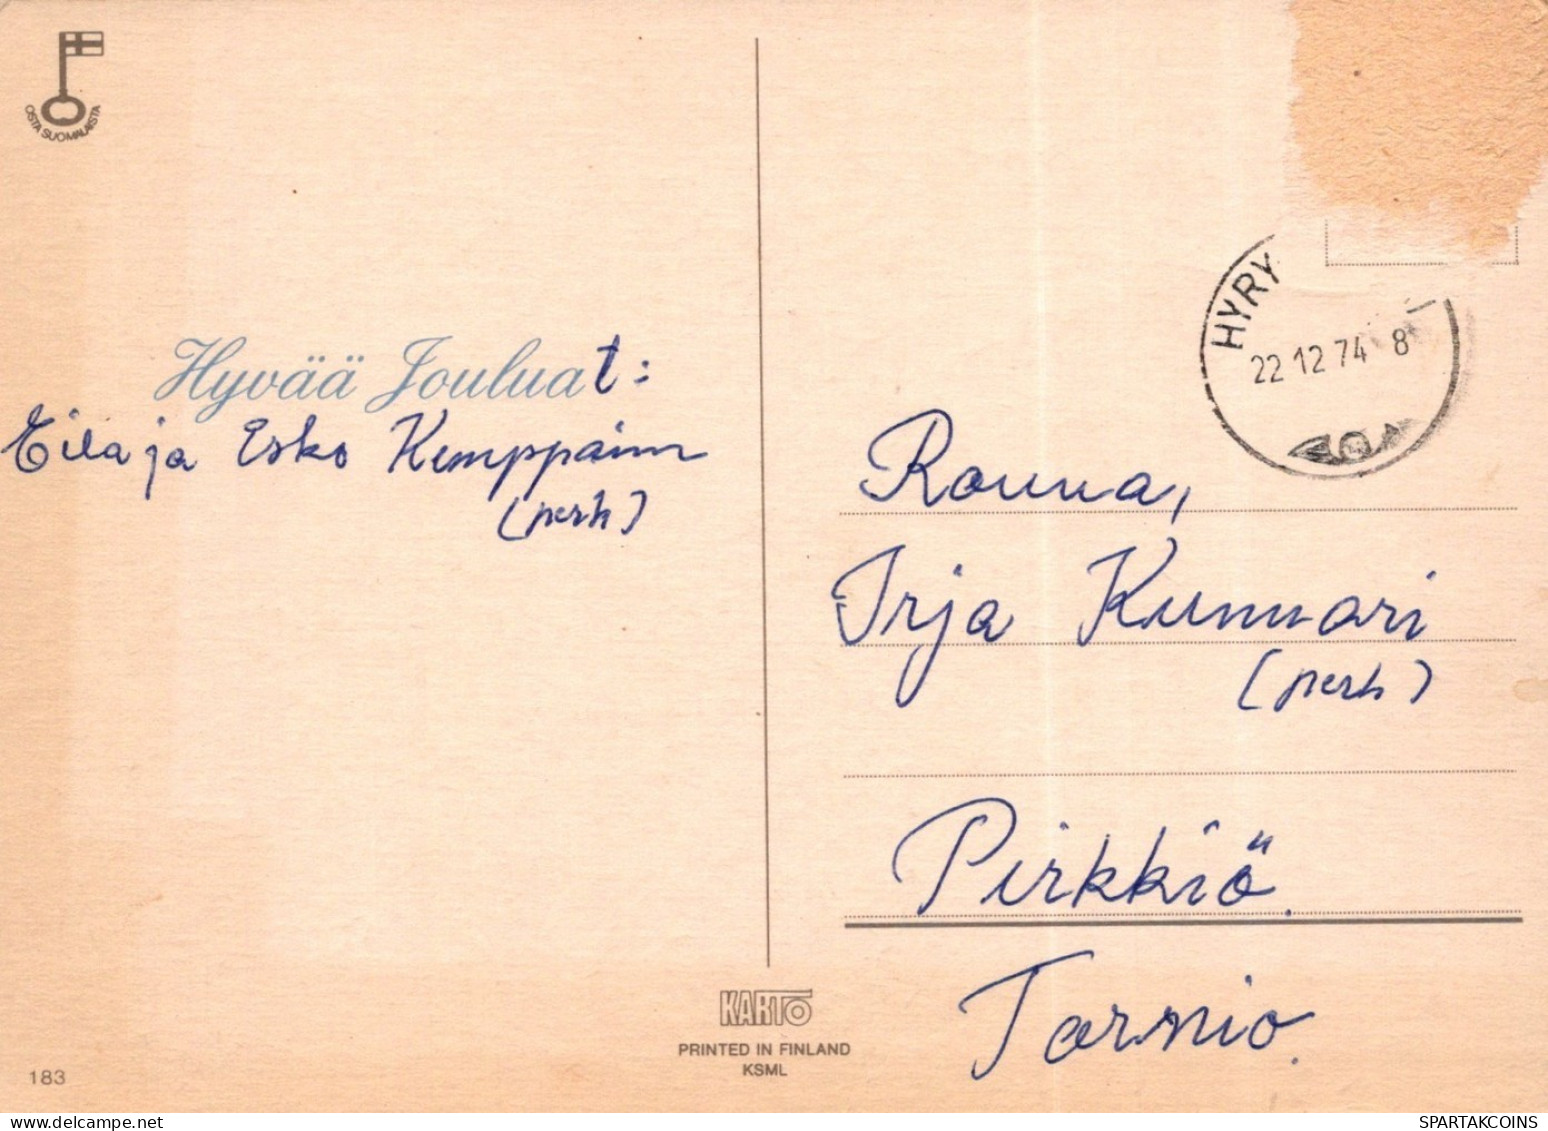 OSTA SUOMALAISTA
Hyvää Jouluat:
Eila ja Esko Kemppainn
(perh)
HYRY
22 12 74 8
Rouva,
Irja Kunnari
(perh)
Pirkkiö.
Tornio.
KARTO
PRINTED IN FINLAND
KSML
183
SPARTAKCOINS